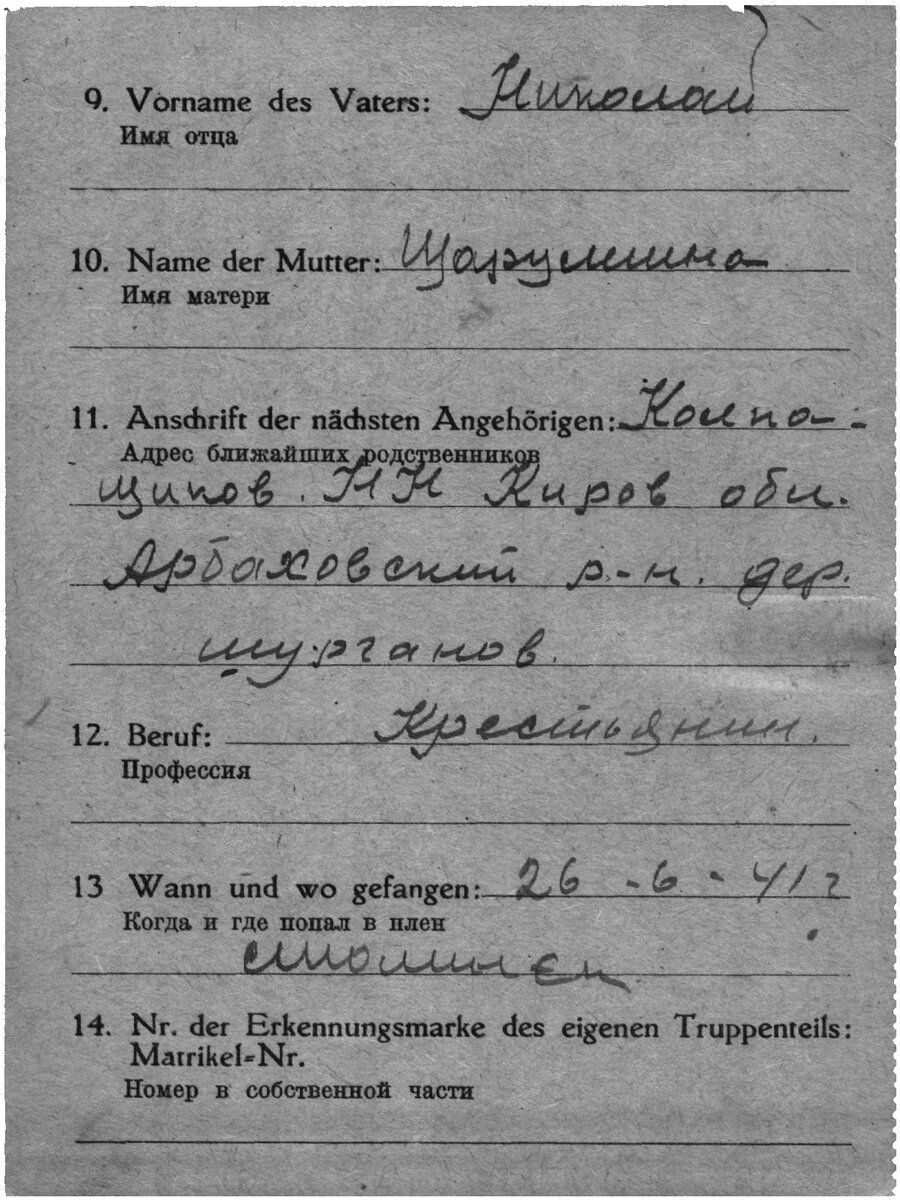 9. Vorname des Vaters: Николай
Имя отца
10. Name der Mutter: Царумина
Имя матери
11. Anschrift der nächsten Angehörigen: Колпа-
Адрес ближайших родственников
щиков. Н Н Киров обл.
Арбаховский р-н. дер.
шурганов.
12. Beruf: Крестьянин.
Профессия
13 Wann und wo gefangen: 26-6-41 г
Когда и где попал в плен
14. Nr. der Erkennungsmarke des eigenen Truppenteils:
Matrikel-Nr.
Номер в собственной части